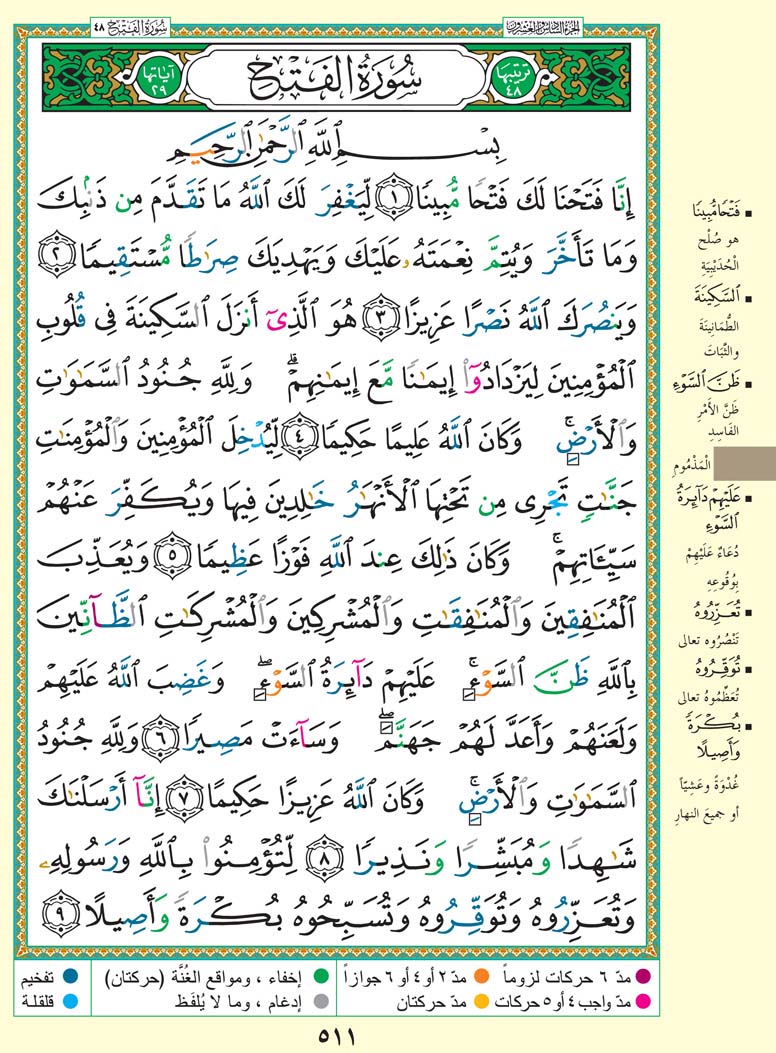 الجزء السادس والعشرون
سُورَةُ الفَتْحِ ٤٨
ترتيبها ٤٨
سُورَةُ الفَتْحِ
آياتها ٢٩
بِسْمِ ٱللَّهِ ٱلرَّحْمَٰنِ ٱلرَّحِيمِ
إِنَّا فَتَحْنَا لَكَ فَتْحًا مُّبِينًا ١ لِّيَغْفِرَ لَكَ ٱللَّهُ مَا تَقَدَّمَ مِن ذَنۢبِكَ
وَمَا تَأَخَّرَ وَيُتِمَّ نِعْمَتَهُۥ عَلَيْكَ وَيَهْدِيَكَ صِرَٰطًا مُّسْتَقِيمًا ٢
وَيَنصُرَكَ ٱللَّهُ نَصْرًا عَزِيزًا ٣ هُوَ ٱلَّذِىٓ أَنزَلَ ٱلسَّكِينَةَ فِى قُلُوبِ
ٱلْمُؤْمِنِينَ لِيَزْدَادُوٓا۟ إِيمَٰنًا مَّعَ إِيمَٰنِهِمْ ۗ وَلِلَّهِ جُنُودُ ٱلسَّمَٰوَٰتِ
وَٱلْأَرْضِ ۚ وَكَانَ ٱللَّهُ عَلِيمًا حَكِيمًا ٤ لِّيُدْخِلَ ٱلْمُؤْمِنِينَ وَٱلْمُؤْمِنَٰتِ
جَنَّٰتٍ تَجْرِى مِن تَحْتِهَا ٱلْأَنْهَٰرُ خَٰلِدِينَ فِيهَا وَيُكَفِّرَ عَنْهُمْ
سَيِّـَٔاتِهِمْ ۚ وَكَانَ ذَٰلِكَ عِندَ ٱللَّهِ فَوْزًا عَظِيمًا ٥ وَيُعَذِّبَ
ٱلْمُنَٰفِقِينَ وَٱلْمُنَٰفِقَٰتِ وَٱلْمُشْرِكِينَ وَٱلْمُشْرِكَٰتِ ٱلظَّآنِّينَ
بِٱللَّهِ ظَنَّ ٱلسَّوْءِ ۚ عَلَيْهِمْ دَآئِرَةُ ٱلسَّوْءِ ۖ وَغَضِبَ ٱللَّهُ عَلَيْهِمْ
وَلَعَنَهُمْ وَأَعَدَّ لَهُمْ جَهَنَّمَ ۖ وَسَآءَتْ مَصِيرًا ٦ وَلِلَّهِ جُنُودُ
ٱلسَّمَٰوَٰتِ وَٱلْأَرْضِ ۚ وَكَانَ ٱللَّهُ عَزِيزًا حَكِيمًا ٧ إِنَّآ أَرْسَلْنَٰكَ
شَٰهِدًا وَمُبَشِّرًا وَنَذِيرًا ٨ لِّتُؤْمِنُوا۟ بِٱللَّهِ وَرَسُولِهِۦ
وَتُعَزِّرُوهُ وَتُوَقِّرُوهُ وَتُسَبِّحُوهُ بُكْرَةً وَأَصِيلًا ٩
▪ فَتْحًا مُّبِينًا
هو صُلْح
الحُدَيْبِيَةِ
▪ ٱلسَّكِينَةَ
الطُّمَانِينَةَ
والثَّبَاتَ
▪ ظَنَّ ٱلسَّوْءِ
ظَنَّ الأَمْرِ
الفَاسِدِ
المَذْمُومِ
▪ عَلَيْهِمْ دَآئِرَةُ
ٱلسَّوْءِ
دُعَاءٌ عَلَيْهِمْ
بِوُقُوعِهِ
▪ تُعَزِّرُوهُ
تَنْصُرُوه تعالى
▪ تُوَقِّرُوهُ
تُعَظِّمُوهُ تعالى
▪ بُكْرَةً
وَأَصِيلًا
غُدْوَةً وعَشِيّاً
أو جميعَ النهارِ
مدّ ٦ حركات لزوماً
مدّ ٢ أو ٤ أو ٦ جوازاً
إخفاء ، ومواقع الغُنَّة (حركتان)
تفخيم
مدّ واجب ٤ أو ٥ حركات
مدّ حركتان
إدغام ، وما لا يُلفَظ
قلقلة
٥١١